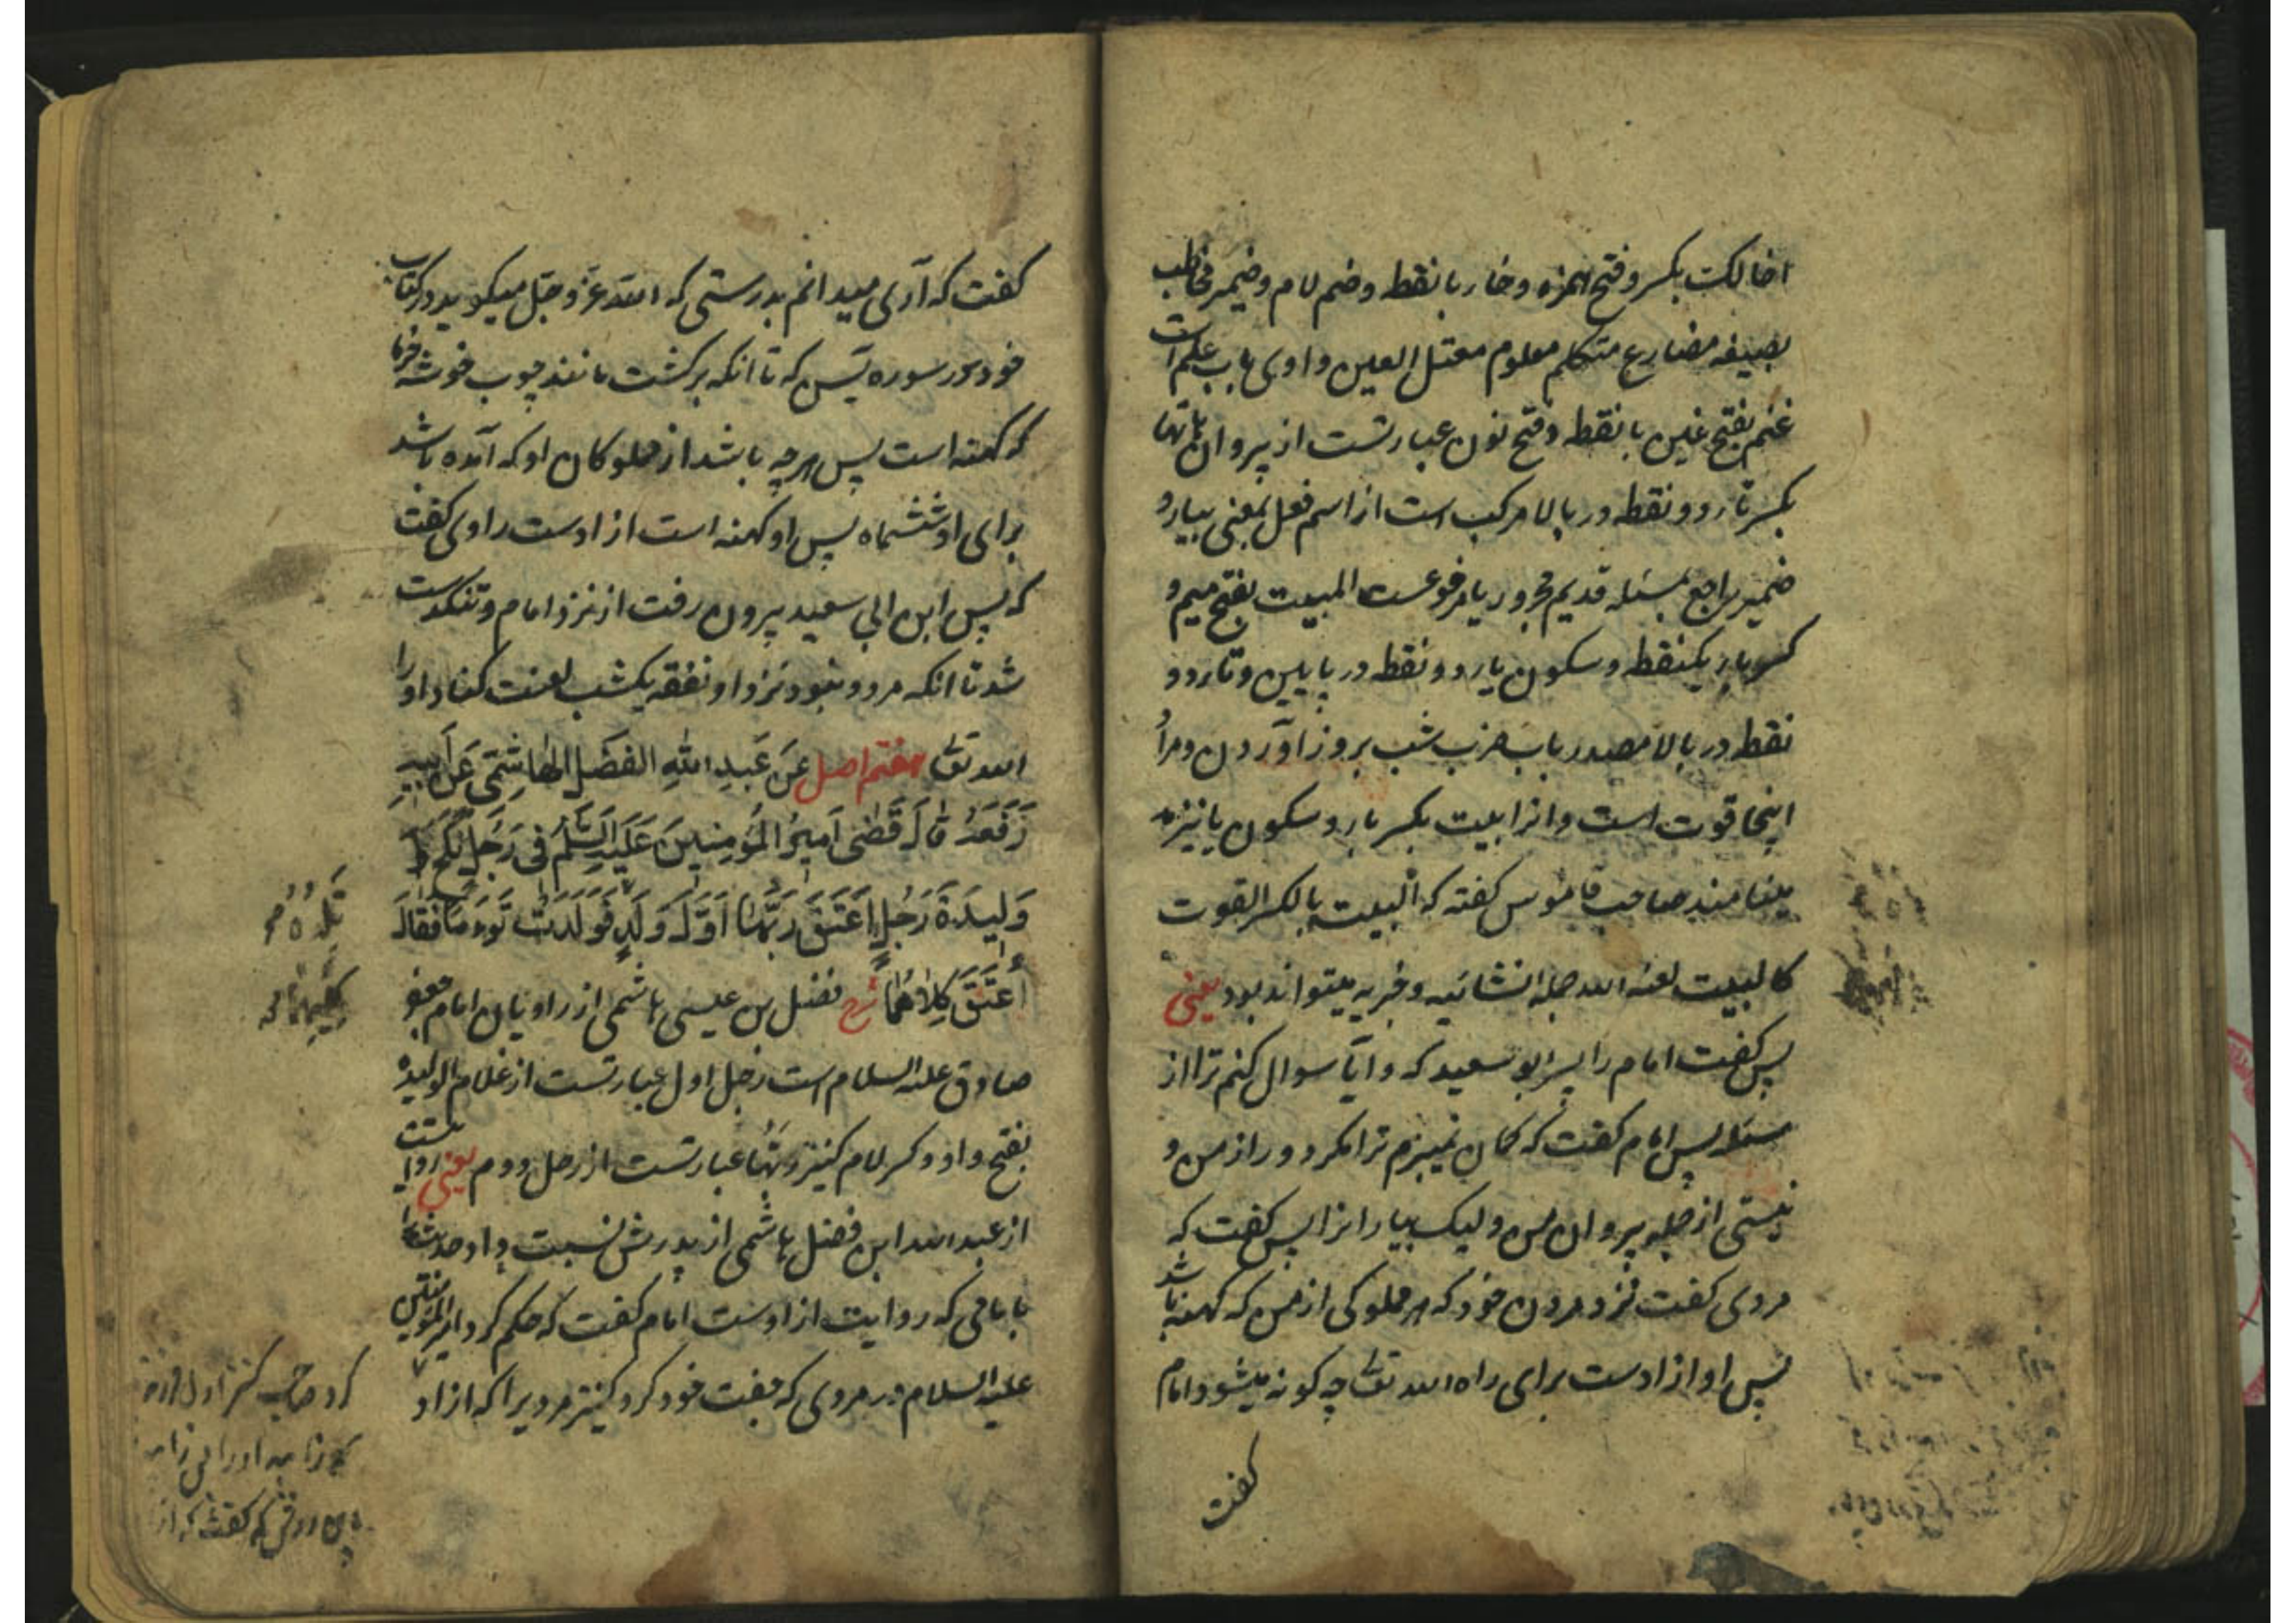 اخالک بکسر و فتح همزه و خاء با نقطه و ضم لام و ضمیر مخاطب
بصیغه مضارع متکلم معلوم معتل العین واوی باب علم است
غنم بفتح غین با نقطه و فتح نون عبارتست از پیروان هاتها
بکسر تاء دو نقطه در بالا مرکب است از اسم فعل بمعنی بیار و
ضمیر راجع بمسئله قدیم مجرور یا مرفوعست المبیت بفتح میم و
کسر باء یکنقطه و سکون یاء دو نقطه در پایین و تاء دو
نقطه در بالا مصدر باب ضرب شب بروز آوردن و مراد
اینجا قوت است و انرا بیت بکسر باء و سکون یا نیز
مینامند صاحب قاموس کفته که البیت بالکسر القوت
کالبیت لعنه الله جمله انشائیه و خبریه میتواند بود یعنی
پس کفت امام را پسر ابو سعید که و ایا سوال کنم ترا از
مسئله پس امام کفت که کمان نمیبرم ترا مکر دور از من و
نیستی از جمله پیروان من ولیک بیار انرا پس کفت که
مردی کفت نزد مردن خود که هر مملوکی از من که کهنه باشد
پس او ازادست برای راه الله تعالی چه کونه میشود امام
کفت
کفت که آری میدانم بدرستی که الله عزّ و جلّ میکوید در کتاب
خود در سوره یس که تا انکه برکشت مانند چوب خوشه خرما
که کهنه است پس هر چه باشد از مملوکان او که آمده باشد
برای او ششماه پس او کهنه است ازادست راوی کفت
که پس ابن ابی سعید بیرون رفت از نزد امام و تنکدست
شد تا انکه مرد و نبود نزد او نفقه یکشب لعنت کناد او را
الله تعالی هفتم اصل عَن عَبدِ اللّٰهِ الفَضلِ الهاشِمیّ عَن اَبیهِ
رَفَعَهُ قالَ قَضی اَمیرُ المُؤمِنینَ عَلَیهِ السَّلٰمُ فی رَجُلٍ نَکَحَ
وَلیدَةَ رَجُلٍ اَعتَقَ رَبُّها اَوَّلَ وَلَدٍ فَوَلَدَت تَوءَمًا فَقالَ
اُعتِقَ کِلاهُما شرح فضل بن عیسی هاشمی از راویان امام جعفر
صادق علیه السلام است رجل اول عبارتست از غلام الولیده
بفتح واو و کسر لام کنیز ربّها عبارتست از رجل دوم یعنی روایتست
از عبد الله ابن فضل هاشمی از پدرش نسبت داد حدیث را
با امامی که روایت ازوست امام کفت که حکم کرد امیر المؤمنین
علیه السلام در مردی که جفت خود کرد کنیز مردیرا که ازاد
تَلِدُهُ
کلیهما
کرد صاحب کنیز اول